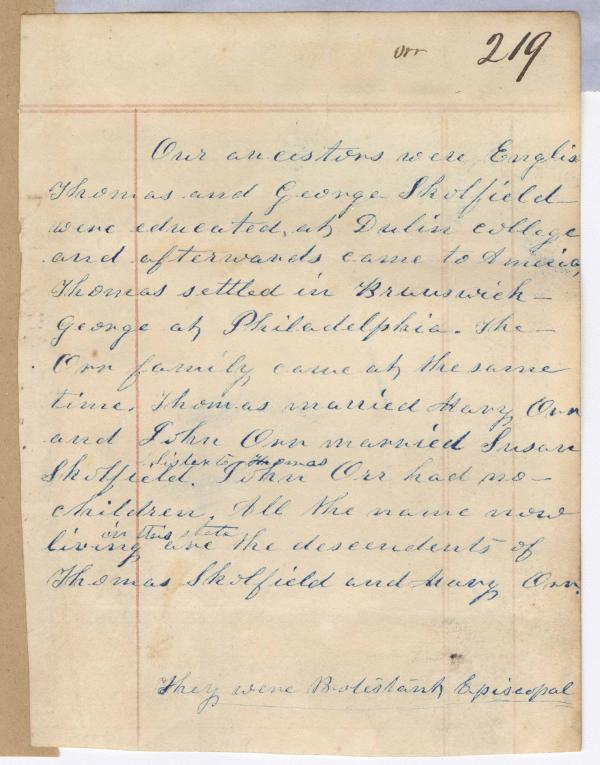 orr 219
Our ancestors were Englis
Thomas and George Skolfield
were educated, at Dulin college
and afterwards came to America,
Thomas settled in Brunswick -
George at Philadelphia. The -
Orr family came at the same
time. Thomas married Mary Orr
and John Orr married Susan
sister to Thomas
Skolfield. John Orr had no -
children. All the name now
in this state
living are the descendents of
Thomas Skolfield and Mary Orr.
They were Protistant Episcopal